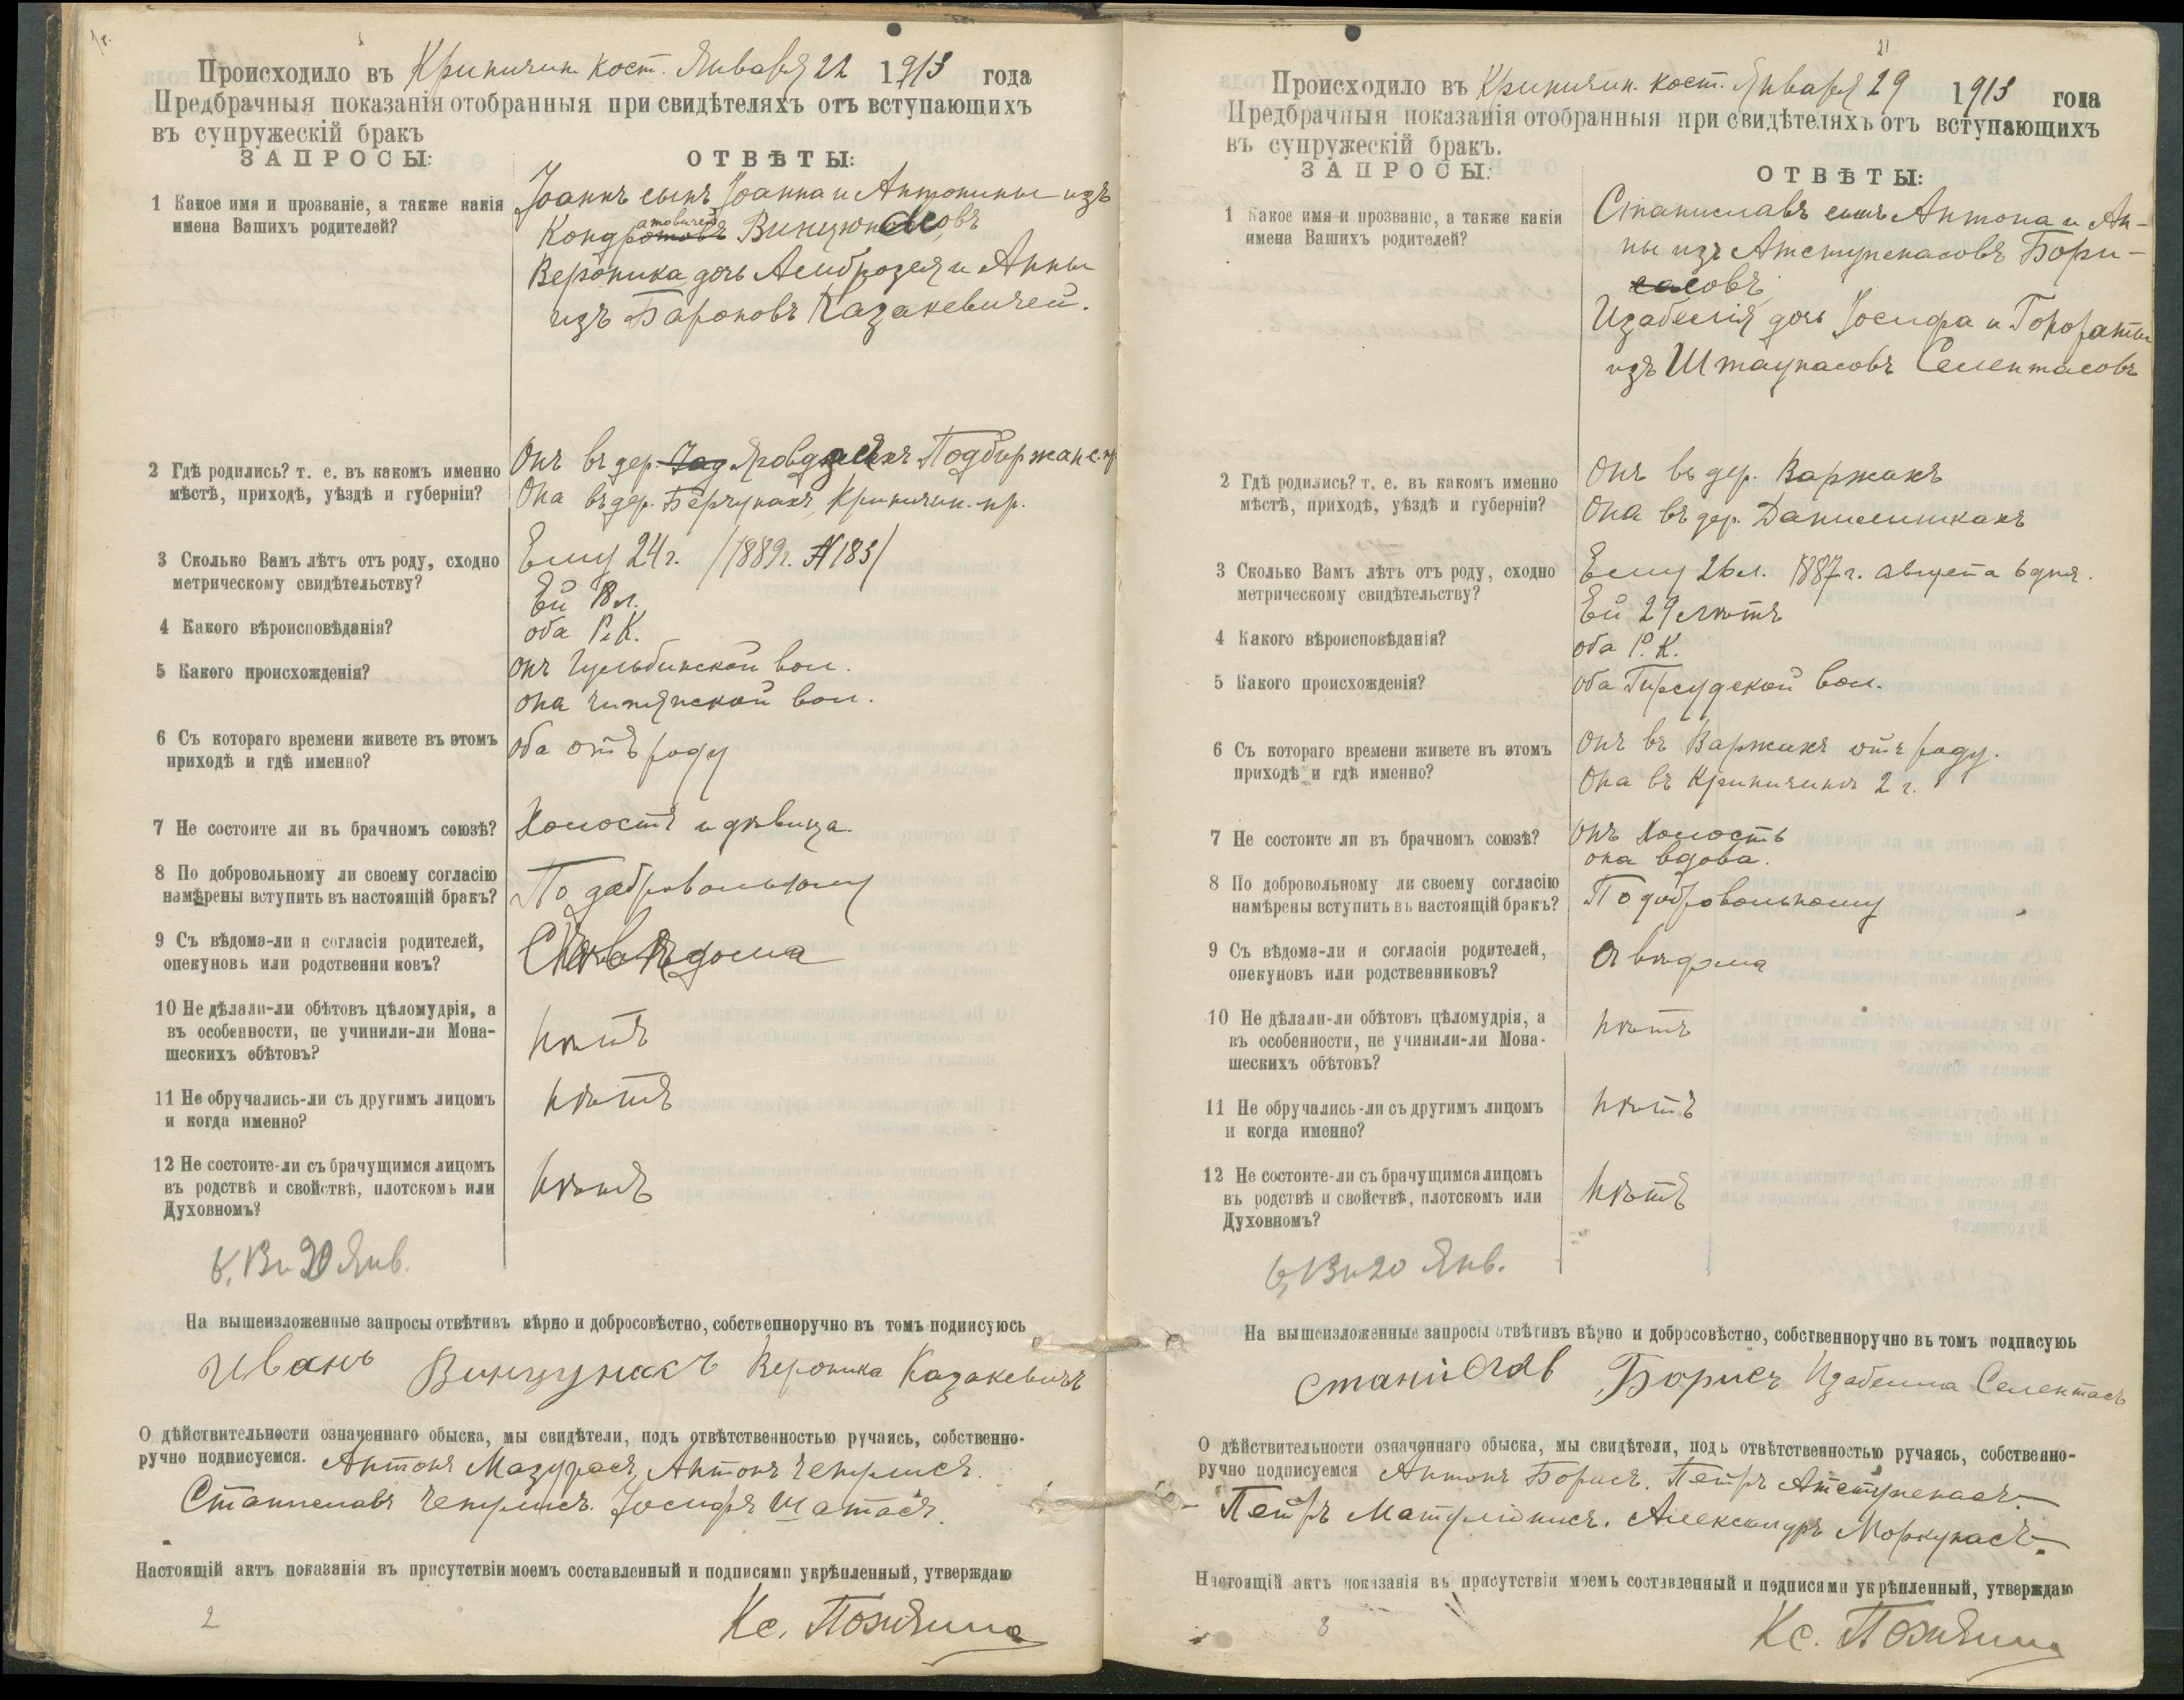 Происходило въ Криничин. кост. Января 22 1913 года
Предбрачныя показанія отобранныя при свидѣтеляхъ отъ вступающихъ
въ супружескій бракъ
ЗАПРОСЫ:
ОТВѢТЫ:
1 Какое имя и прозваніе, а также какія
имена Вашихъ родителей?
Іоаннъ сынъ Іоанна и Антонины изъ
Вероника дочь Амброзея и Анны
изъ Бароновъ Казакевичей.
2 Гдѣ родились? т. е. въ какомъ именно
мѣстѣ, приходѣ, уѣздѣ и губерніи?
Онъ въ дер. Подбиржанс.
Она въ дер. Берчунахъ, Криничин. пр.
3 Сколько Вамъ лѣтъ отъ роду, сходно
метрическому свидѣтельству?
Ему 24 г. /1889г. N183/
Ей 18 л.
4 Какого вѣроисповѣданія?
оба Р. К.
5 Какого происхожденія?
онъ Гульбинской вол.
она вол.
6 Съ котораго времени живете въ этомъ
приходѣ и гдѣ именно?
оба отъ роду
7 Не состоите ли въ брачномъ союзѣ?
Холостъ и дѣвица.
8 По добровольному ли своему согласію
намѣрены вступить въ настоящій бракъ?
По добровольному
9 Съ вѣдома-ли и согласія родителей,
опекуновъ или родственни ковъ?
вѣдома
10 Не дѣлали-ли обѣтовъ цѣломудрія, а
въ особенности, не учинили-ли Мона-
шескихъ обѣтовъ?
нѣтъ
11 Не обручались-ли съ другимъ лицомъ
и когда именно?
нѣтъ
12 Не состоите-ли съ брачущимся лицомъ
въ родствѣ и свойствѣ, плотскомъ или
Духовномъ?
нѣтъ
6, 13 и 20 Янв.
На вышеизложенные запросы отвѣтивъ вѣрно и добросовѣстно, собственноручно въ томъ подписуюсь
Иванъ Винцунасъ Вероника Казакевичъ
О дѣйствительности означеннаго обыска, мы свидѣтели, подъ отвѣтственностью ручаясь, собственно-
ручно подписуемся. Антонъ Мазурасъ, Антонъ Чепулисъ.
Станиславъ Чепулисъ. Іосифъ Шатасъ.
Настоящій актъ показанія въ присутствіи моемъ составленный и подписями укрѣпленный, утверждаю
Кс.
2
21
Происходило въ Криничин. кост. Января 29 1913 года
Предбрачныя показанія отобранныя при свидѣтеляхъ отъ вступающихъ
въ супружескій бракъ.
ЗАПРОСЫ:
ОТВѢТЫ:
1 Какое имя и прозваніе, а также какія
имена Вашихъ родителей?
Станиславъ сынъ Антона и Ан-
ны изъ Атступенасовъ Бори-
совъ,
Изабелія дочь Іосифа и Гороаты
изъ Штаупасовъ Селентасовъ
2 Гдѣ родились? т. е. въ какомъ именно
мѣстѣ, приходѣ, уѣздѣ и губерніи?
Онъ въ дер. Варжахъ
Она въ дер. Данилишкахъ
3 Сколько Вамъ лѣтъ отъ роду, сходно
метрическому свидѣтельству?
Ему 26 л. 1887 г. августа 6 дня.
Ей 29 лѣтъ
4 Какого вѣроисповѣданія?
оба Р. К.
5 Какого происхожденія?
оба Гирсудской вол.
6 Съ котораго времени живете въ этомъ
приходѣ и гдѣ именно?
Онъ въ Варжахъ отъ роду.
Она въ Криничинѣ 2 г.
7 Не состоите ли въ брачномъ союзѣ?
онъ холостъ
она вдова.
8 По добровольному ли своему согласію
намѣрены вступить въ настоящій бракъ?
По добровольному
9 Съ вѣдома-ли и согласія родителей,
опекуновъ или родственниковъ?
съ вѣдома
10 Не дѣлали-ли обѣтовъ цѣломудрія, а
въ особенности, не учинили-ли Мона-
шескихъ обѣтовъ?
нѣтъ
11 Не обручались-ли съ другимъ лицомъ
и когда именно?
нѣтъ
12 Не состоите-ли съ брачущимся лицомъ
въ родствѣ и свойствѣ, плотскомъ или
Духовномъ?
нѣтъ
6, 13 и 20 Янв.
На вышеизложенные запросы отвѣтивъ вѣрно и добросовѣстно, собственноручно въ томъ подписуюь
Станислав Борисъ Изабелла Селентасъ
О дѣйствительности означеннаго обыска, мы свидѣтели, подъ отвѣтственностью ручаясь, собственно-
ручно подписуемся Антонъ Борисъ. Петръ Атступенасъ.
Петръ Матулionисъ. Александръ Моркунасъ.
Настоящій актъ показанія въ присутствіи моемъ составленный и подписями укрѣпленный, утверждаю
Кс.
3